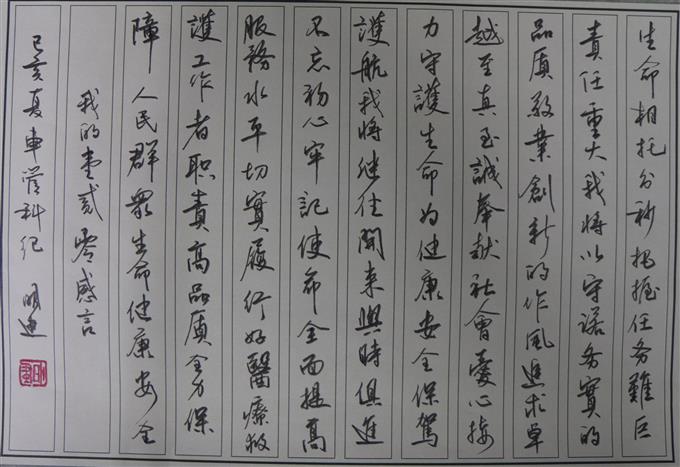 生命相托分秒把握任务艱巨
責任重大我將以守諾务實的
品质敬業創新的作風追求卓
越至真至誠奉献社會憂心接
力守護生命为健康安全保駕
護航我將继往開来與時俱進
不忘初心牢記使命全面提高
服務水平切實履行好醫療救
護工作者职責高品质全力保
障人民群眾生命健康安全
我的壹贰零感言
己亥夏車管科纪 明迪